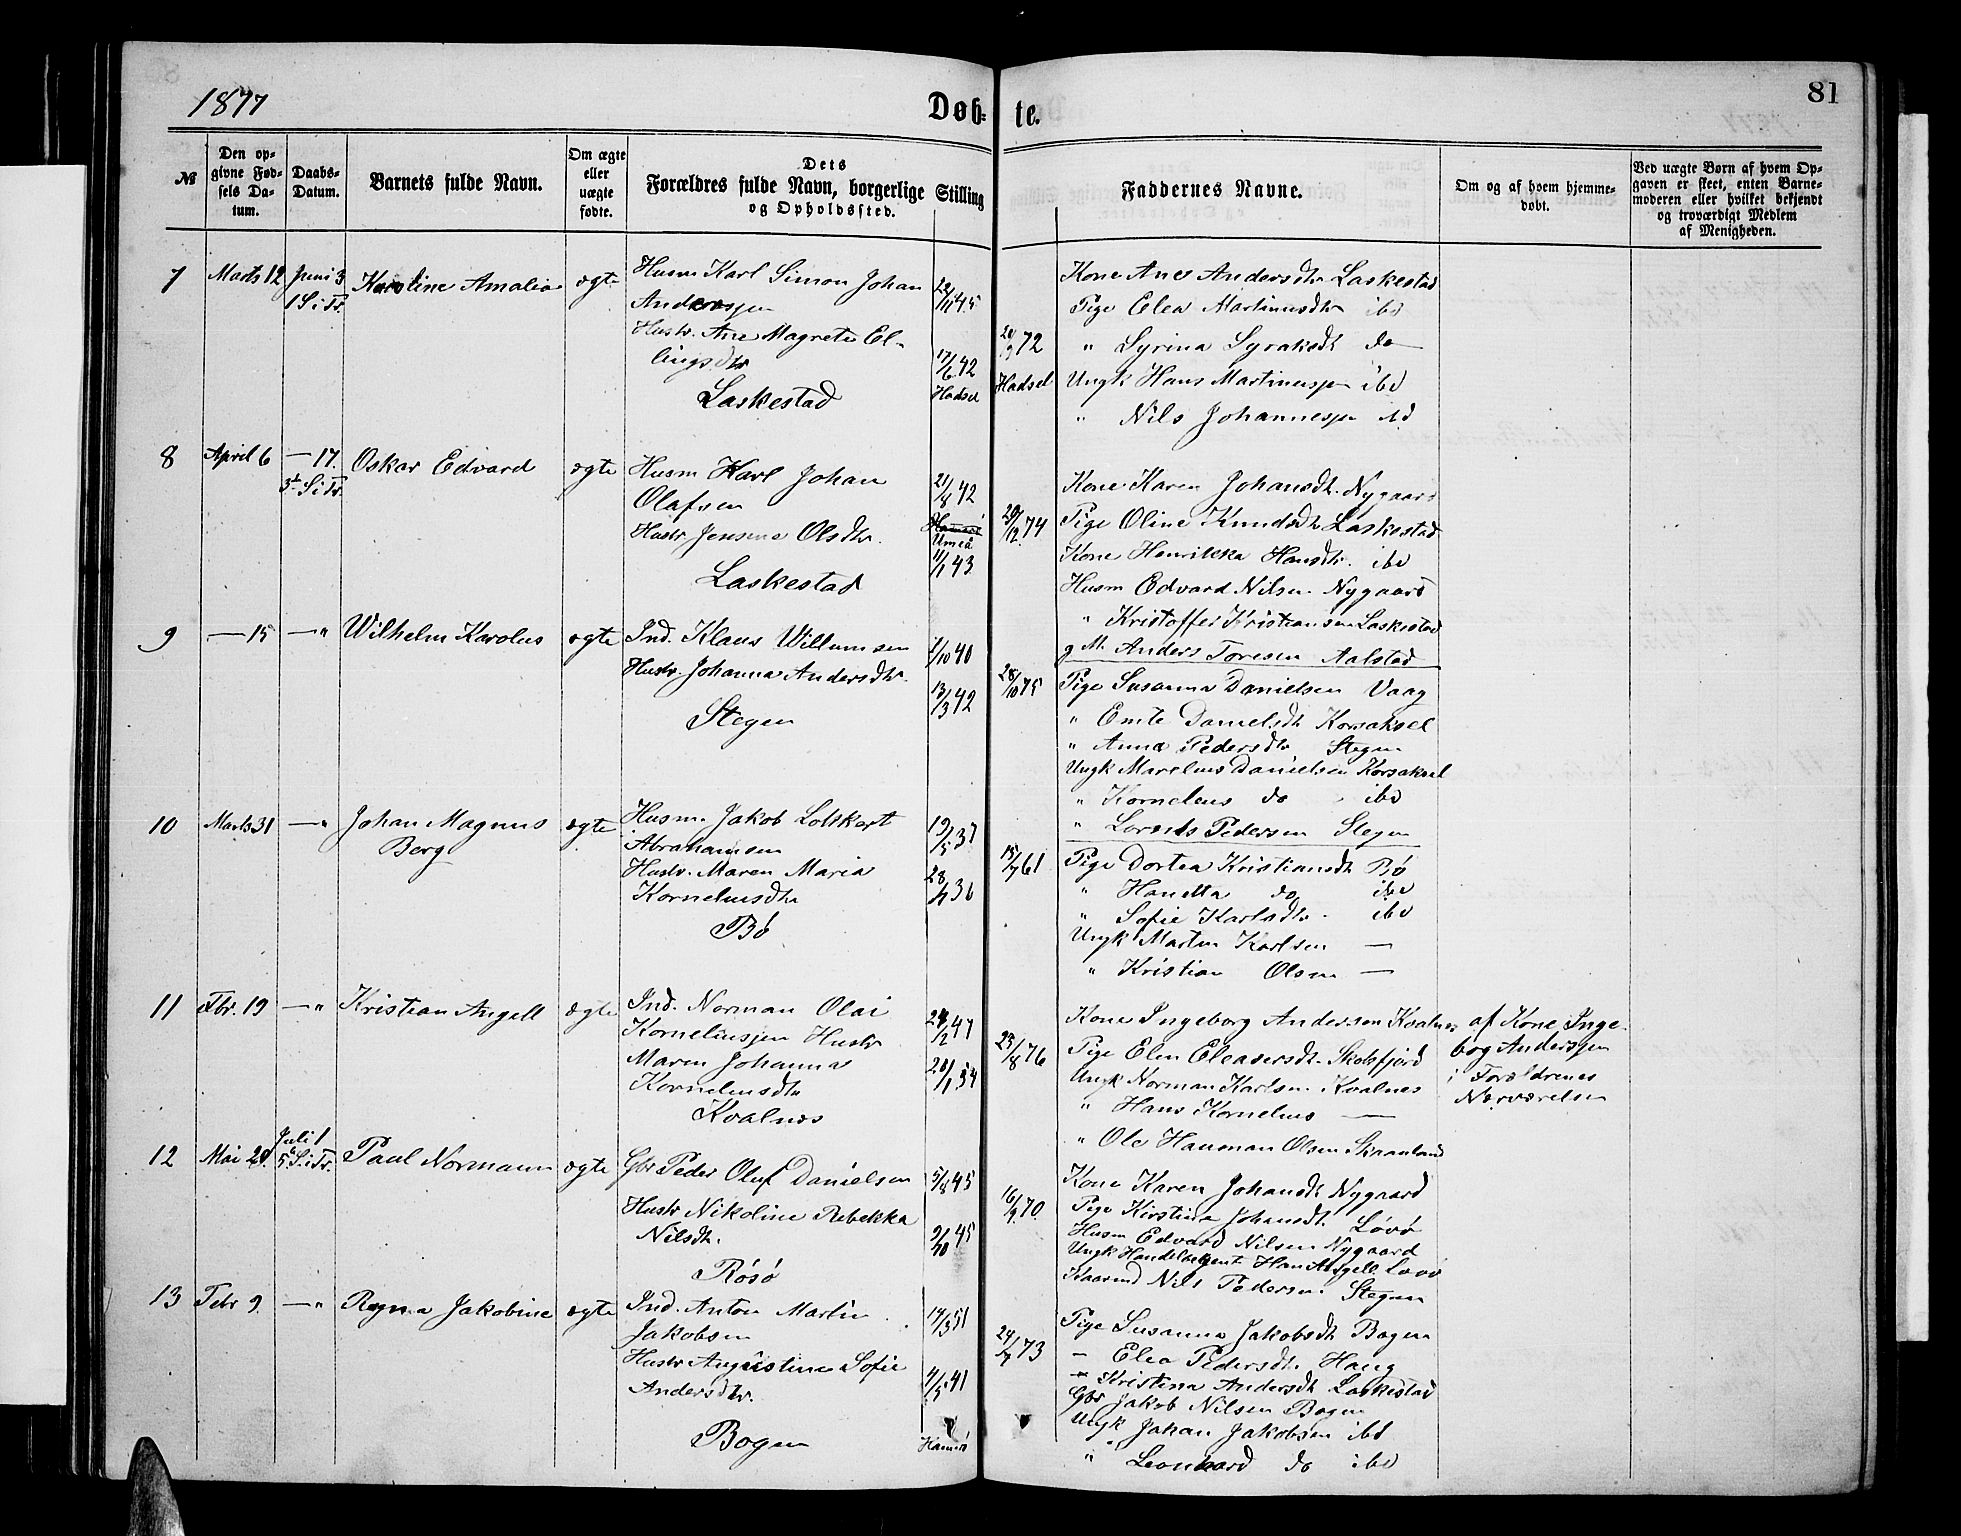 1877
Døb-
te.
81
№
Den op-
givne Fød-
sels Da-
tum.
Daabs-
Datum.
Barnets fulde Navn.
Om ægte
eller
uægte
fødte.
Dets
Forældres fulde Navn, borgerlige Stilling
og Opholdssted.
Faddernes Navne.
Om og af hvem hjemme-
døbt.
Ved uægte Børn af hvem Op-
gaven er skeet, enten Barne-
moderen eller hvilket bekjendt
og troværdigt Medlem
af Menigheden.
7
Marts 12
Juni 3
1 S. i Tr.
Karoline Amalia
ægte
Husm Karl Simon Johan
Anderssen
Hustr. Ane Magrete El-
lingsdtr
Laskestad
45
17/6 42
Hadsel
72
Hadsel
Kone Ane Andersdtr Laskestad
Pige Elea Martinusdtr ibd
" Syrina Syraksdt do
Ungk Hans Martinussen ibd
" Nils Johannessen ibd
8
April 6
— 17.
3die S. i Tr.
Oskar Edvard
ægte
Husm Karl Johan
Olafsen
Hustr Jensine Olsdtr.
Laskestad
21/8 42
Umeå
11/1 43
29/12 74
Kone Karen Johansdt. Nygaard
Pige Oline Knudsdtr Laskestad
Kone Henrikka Hansdtr. ibd
Husm Edvard Nilsen Nygaard
" Kristoffer Kristiansen Laskestad
g M. Anders Toresen Aalstad
9
— 15
— "
Wilhelm Karolus
ægte
Ind. Klaus Willumsen
Hustr. Johanna Andersdtr.
Stegen
/10 40
13/3 42
28/10 75
Pige Susanna Danielsen Vaag
" Emte Danielsdt Korsaksel
" Anna Pedersdtr Stegen
Ungk Marelius Danielsen Korsaksel
" Kornelius do ibd
" Lorents Pedersen Stegen
10
Marts 31
— "
Johan Magnus
Berg
ægte
Husm. Jakob Lotskert
Abrahamsen
Hustr. Maren Maria
Korneliusdtr
Bø
19/5 37
36
15/7 61
Pige Dortea Kristiansdt Bø
" Hanetta do ibd
" Sofie Karlsdtr. ibd
Ungk Martin Karlsen —
" Kristian Olsen —
11
Fbr. 19
— "
Kristian Angell
ægte
Ind. Norman Olai
Korneliussen Hustr
Maren Johanna
Korneliusdtr
Kvalnes
47
54
23/8 76
Kone Ingeborg Anderssen Kvalnes
Pige Elen Eleasersdt. Skotsfjord
Ungk Norman Karlsen Kvalnes
" Hans Kornelius —
" Ole Hanman Olsen Skaanland
af Kone Inge-
borg Anderssen
i Forældrenes
Nærværelse
12
Mai 20.
Juli 1
5te S. i Tr.
Paul Normann
ægte
Gbr Peder Oluf Danielsen
Hustr Nikoline Rebekka
Nilsdt.
Røsø
5/8 45
9/10 45
70.
Kone Karen Johansdt Nygaard
Pige Kirstina Johansdt. Løvø
Husm Edvard Nilsen Nygaard
Ungk Handelsagent Hans Angell Løvø
Kaarmd Nils Pedersen. Stegen
13
Febr 9.
— "
Ragna Jakobine
ægte
Ind. Anton Martin
Jakobsen
Hustr Augustine Sofie
Andersdtr.
Bogen
14/3 51
4/5 41
Hamarø
73
Pige Susanna Jakobsdt Bogen
— Elea Pedersdt. Haug
— Kristina Andersdt Laskestad
Gbr Jakob Nilsen Bogen
Ungk Johan Jakobsen ibd
" Leonhard do ibd